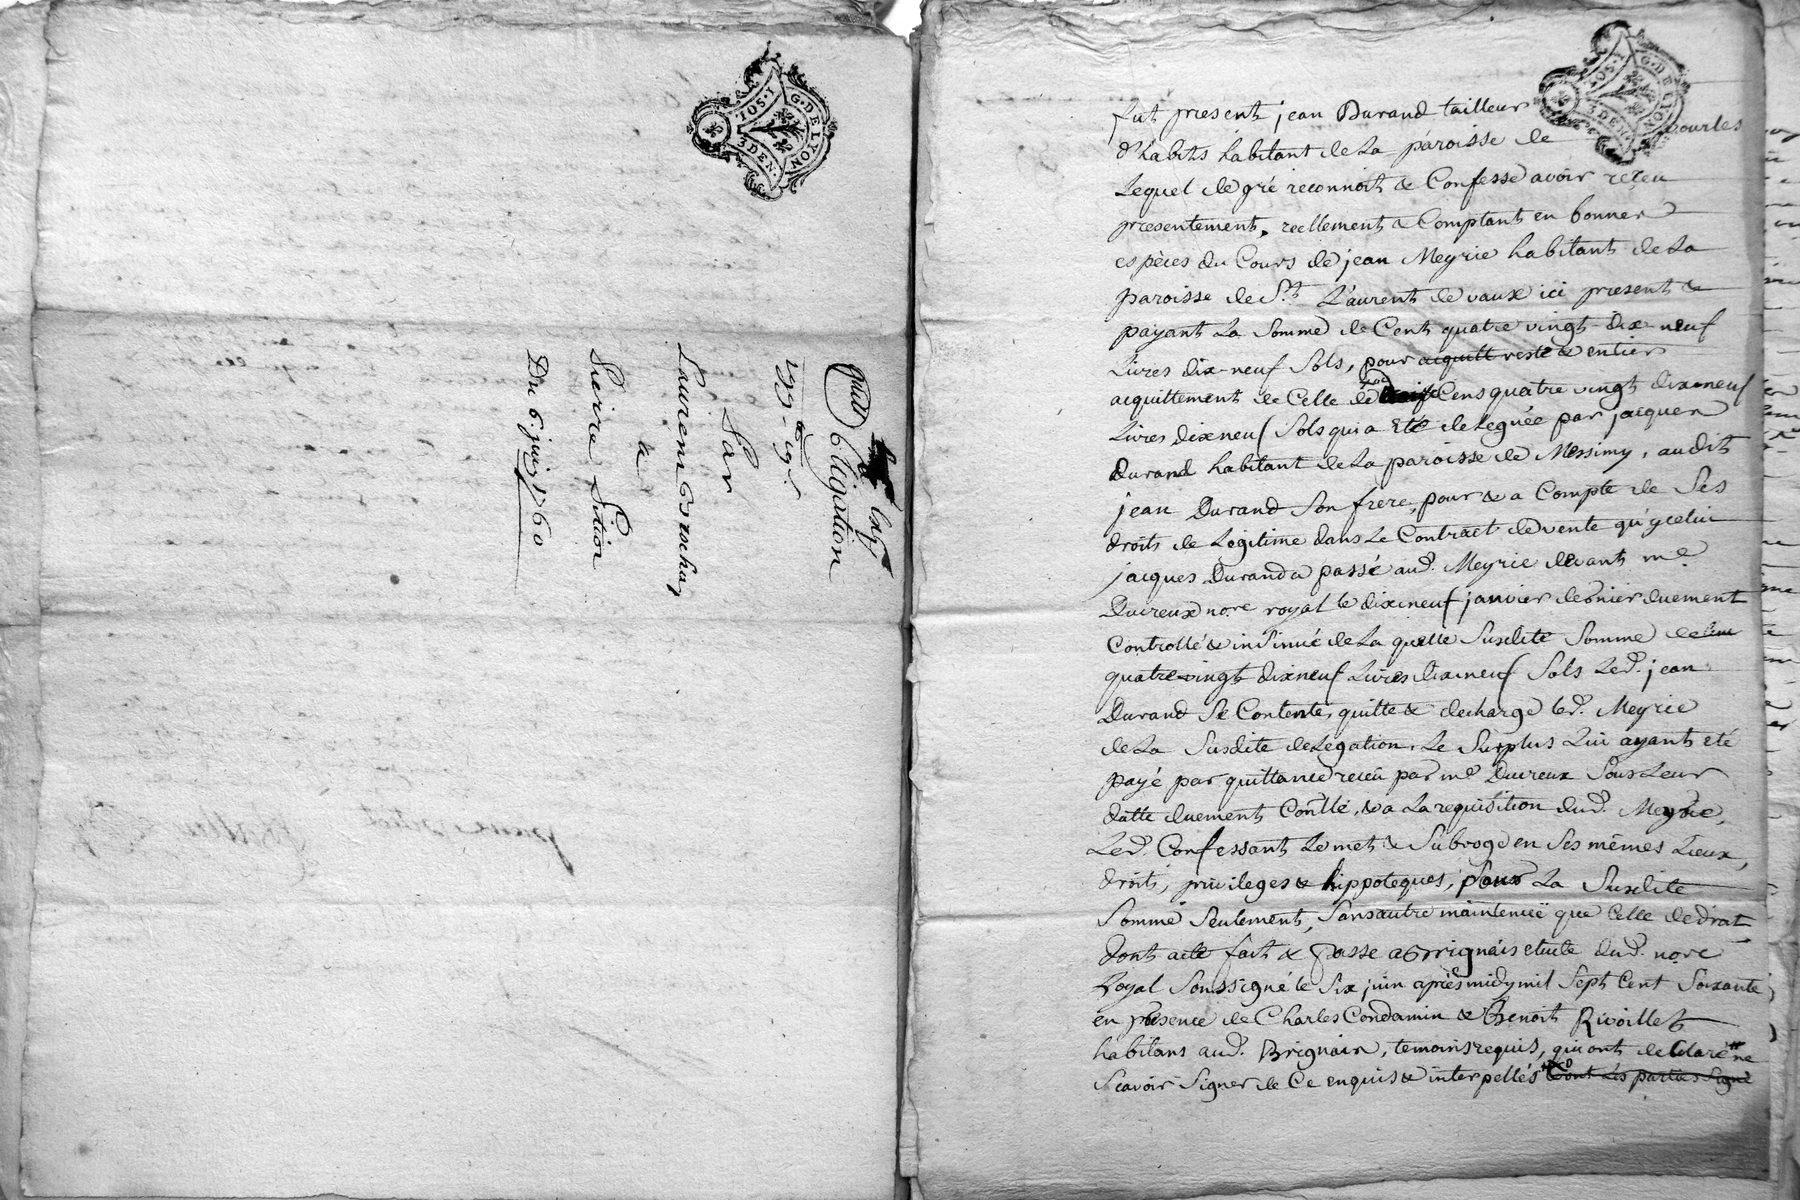 1 SOL
3 DEN.
G. DE LYON
obligation
199ᵗᵗ 19ˢ.
Par
Laurent
a
Pierre
Du 6. juin 1760
1 SOL
3 DEN.
G. DE LYON
fut present jean Durand tailleur
d'habits habitant de La paroisse de vourles
Lequel de gré reconnoit & Confesse avoir reçeu
presentement, reellement & Comptant en bonnes
espèces du Cours de jean Meyrie habitant de La
paroisse de Sᵗ. Laurent de vaux ici present &
payant La Somme de Cent quatre vingt dix neuf
Livres dix-neuf Sols, pour acquitt reste & entier
acquittement de Celle de Cens quatre vingt dix neuf
Livres dix neuf Sols qui a Eté deleguée par jacques
Durand habitant de La paroisse de Messimy, audit
jean Durand Son frere, pour & a Compte de Ses
droits de Légitime dans Le Contract de vente qu'ycelui
jacques Durand a passé aud. Meyrie devant mᵉ
Ducreux noʳᵉ royal le dix neuf janvier dernier duement
Controllé & insinué de La quelle Susdite Somme de Cent
quatre-vingt dix neuf Livres dix neuf Sols Led. jean
Durand Se Contente, quitte & decharge led. Meyrie
de La Susdite delegation, Le Surplus Lui ayant eté
payé par quittance reçeu par mᵉ Ducreux Sous Leur
datte duement Contllé, & a La requisition dud. Meyrie,
Led. Confessant Le met & Subroge en Ses mêmes Lieux,
droits, privileges & hippoteques, pour La Susdite
Somme Seulement, Sans autre maintenüe que Celle de droit
dont acte fait & passé a Brignais etude dud. noʳᵉ
Royal Soussigné le Six juin après midy mil Sept Cent Soixante,
en presence de Charles Condamin & Benoit Rivoillet
habitans aud. Brignais, temoins requis, qui ont declaré ne
Scavoir Signer de Ce enquis & interpellés dont Les parties Signé